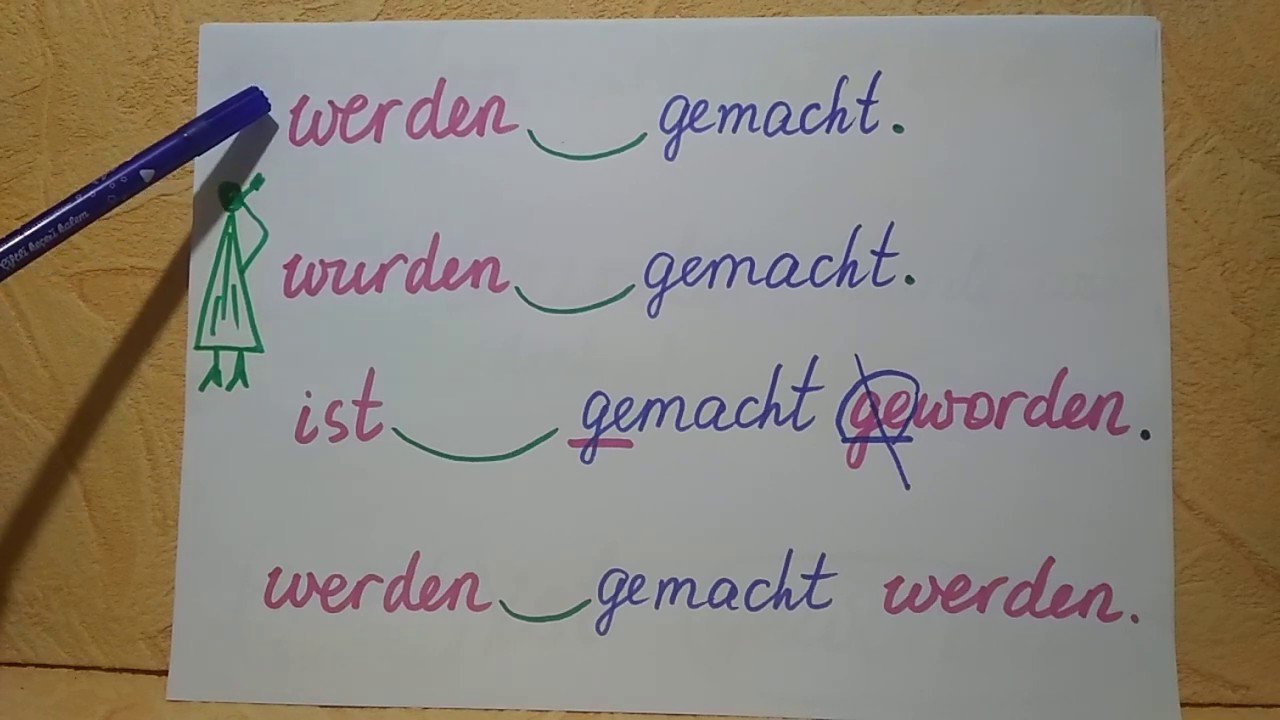 werden gemacht.
wurden gemacht.
ist gemacht geworden.
werden gemacht werden.